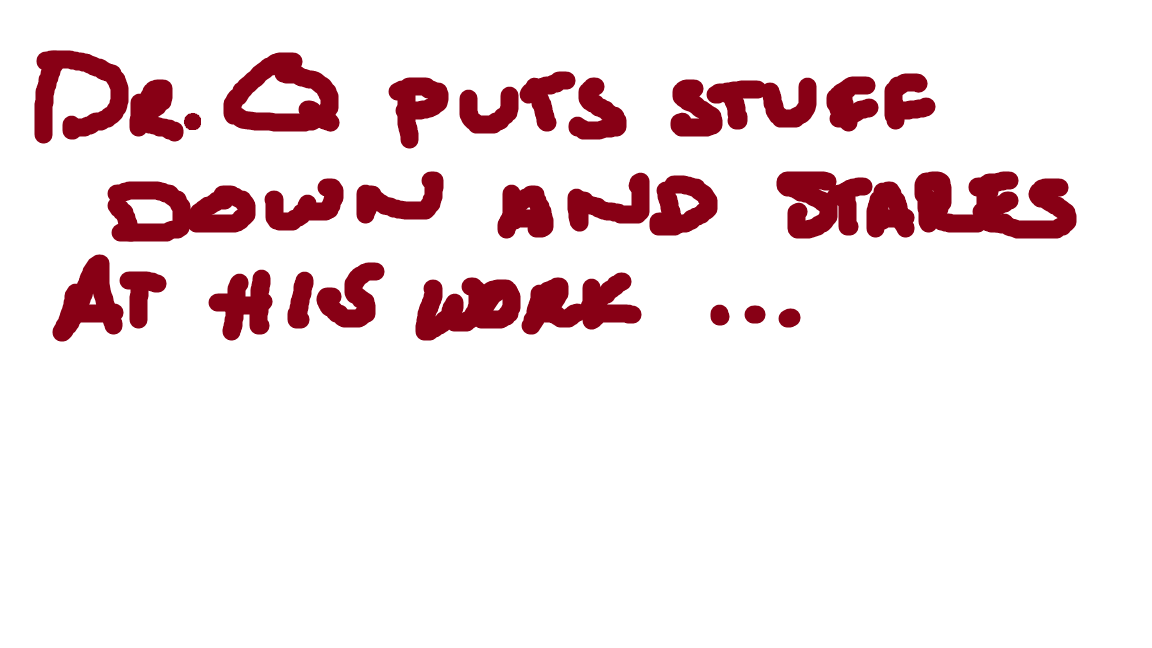 DR. Q PUTS STUFF
DOWN AND STARES
AT HIS WORK ...